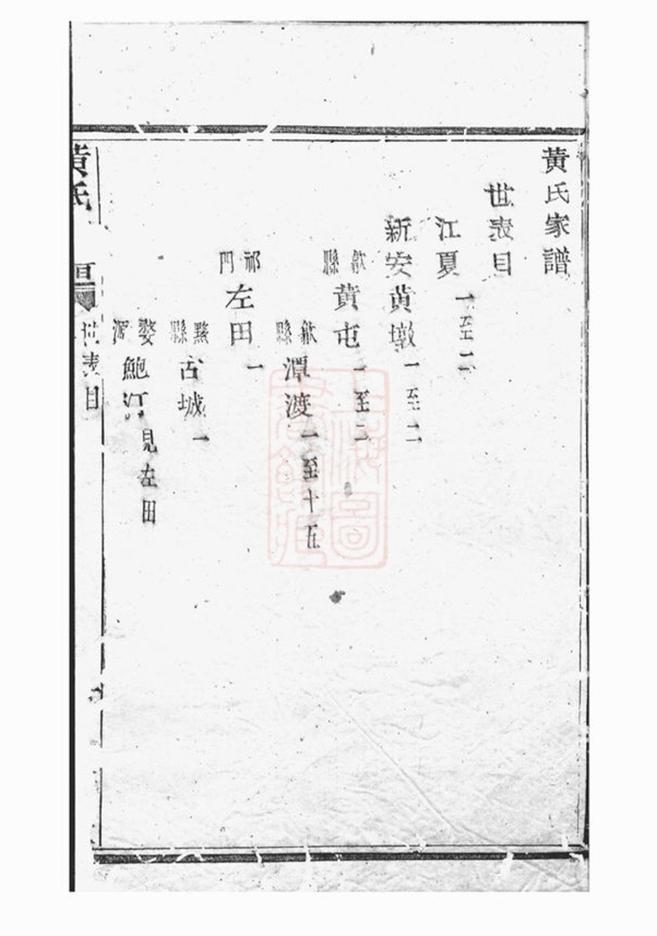 黃氏家譜
世表目
江夏 一至二
新安黃墩 一至二
歙縣 黃屯 一至二
歙縣 潭渡 一至十五
祁門 左田 一
黟縣 古城 一
婺源 鮑汀 見左田
黃氏
世表目